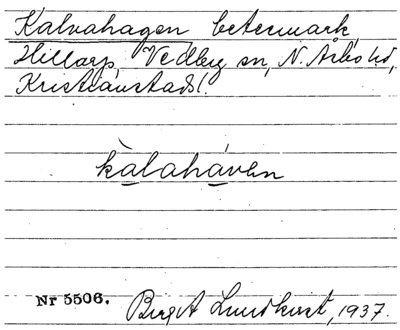 Kalvahagen betesmark,
Hillarp, Vedby sn, N. Åsbo hd,
Kristianstads l.
kàlahá̱ven
Nr 5506. Birgit Lundkvist, 1937.